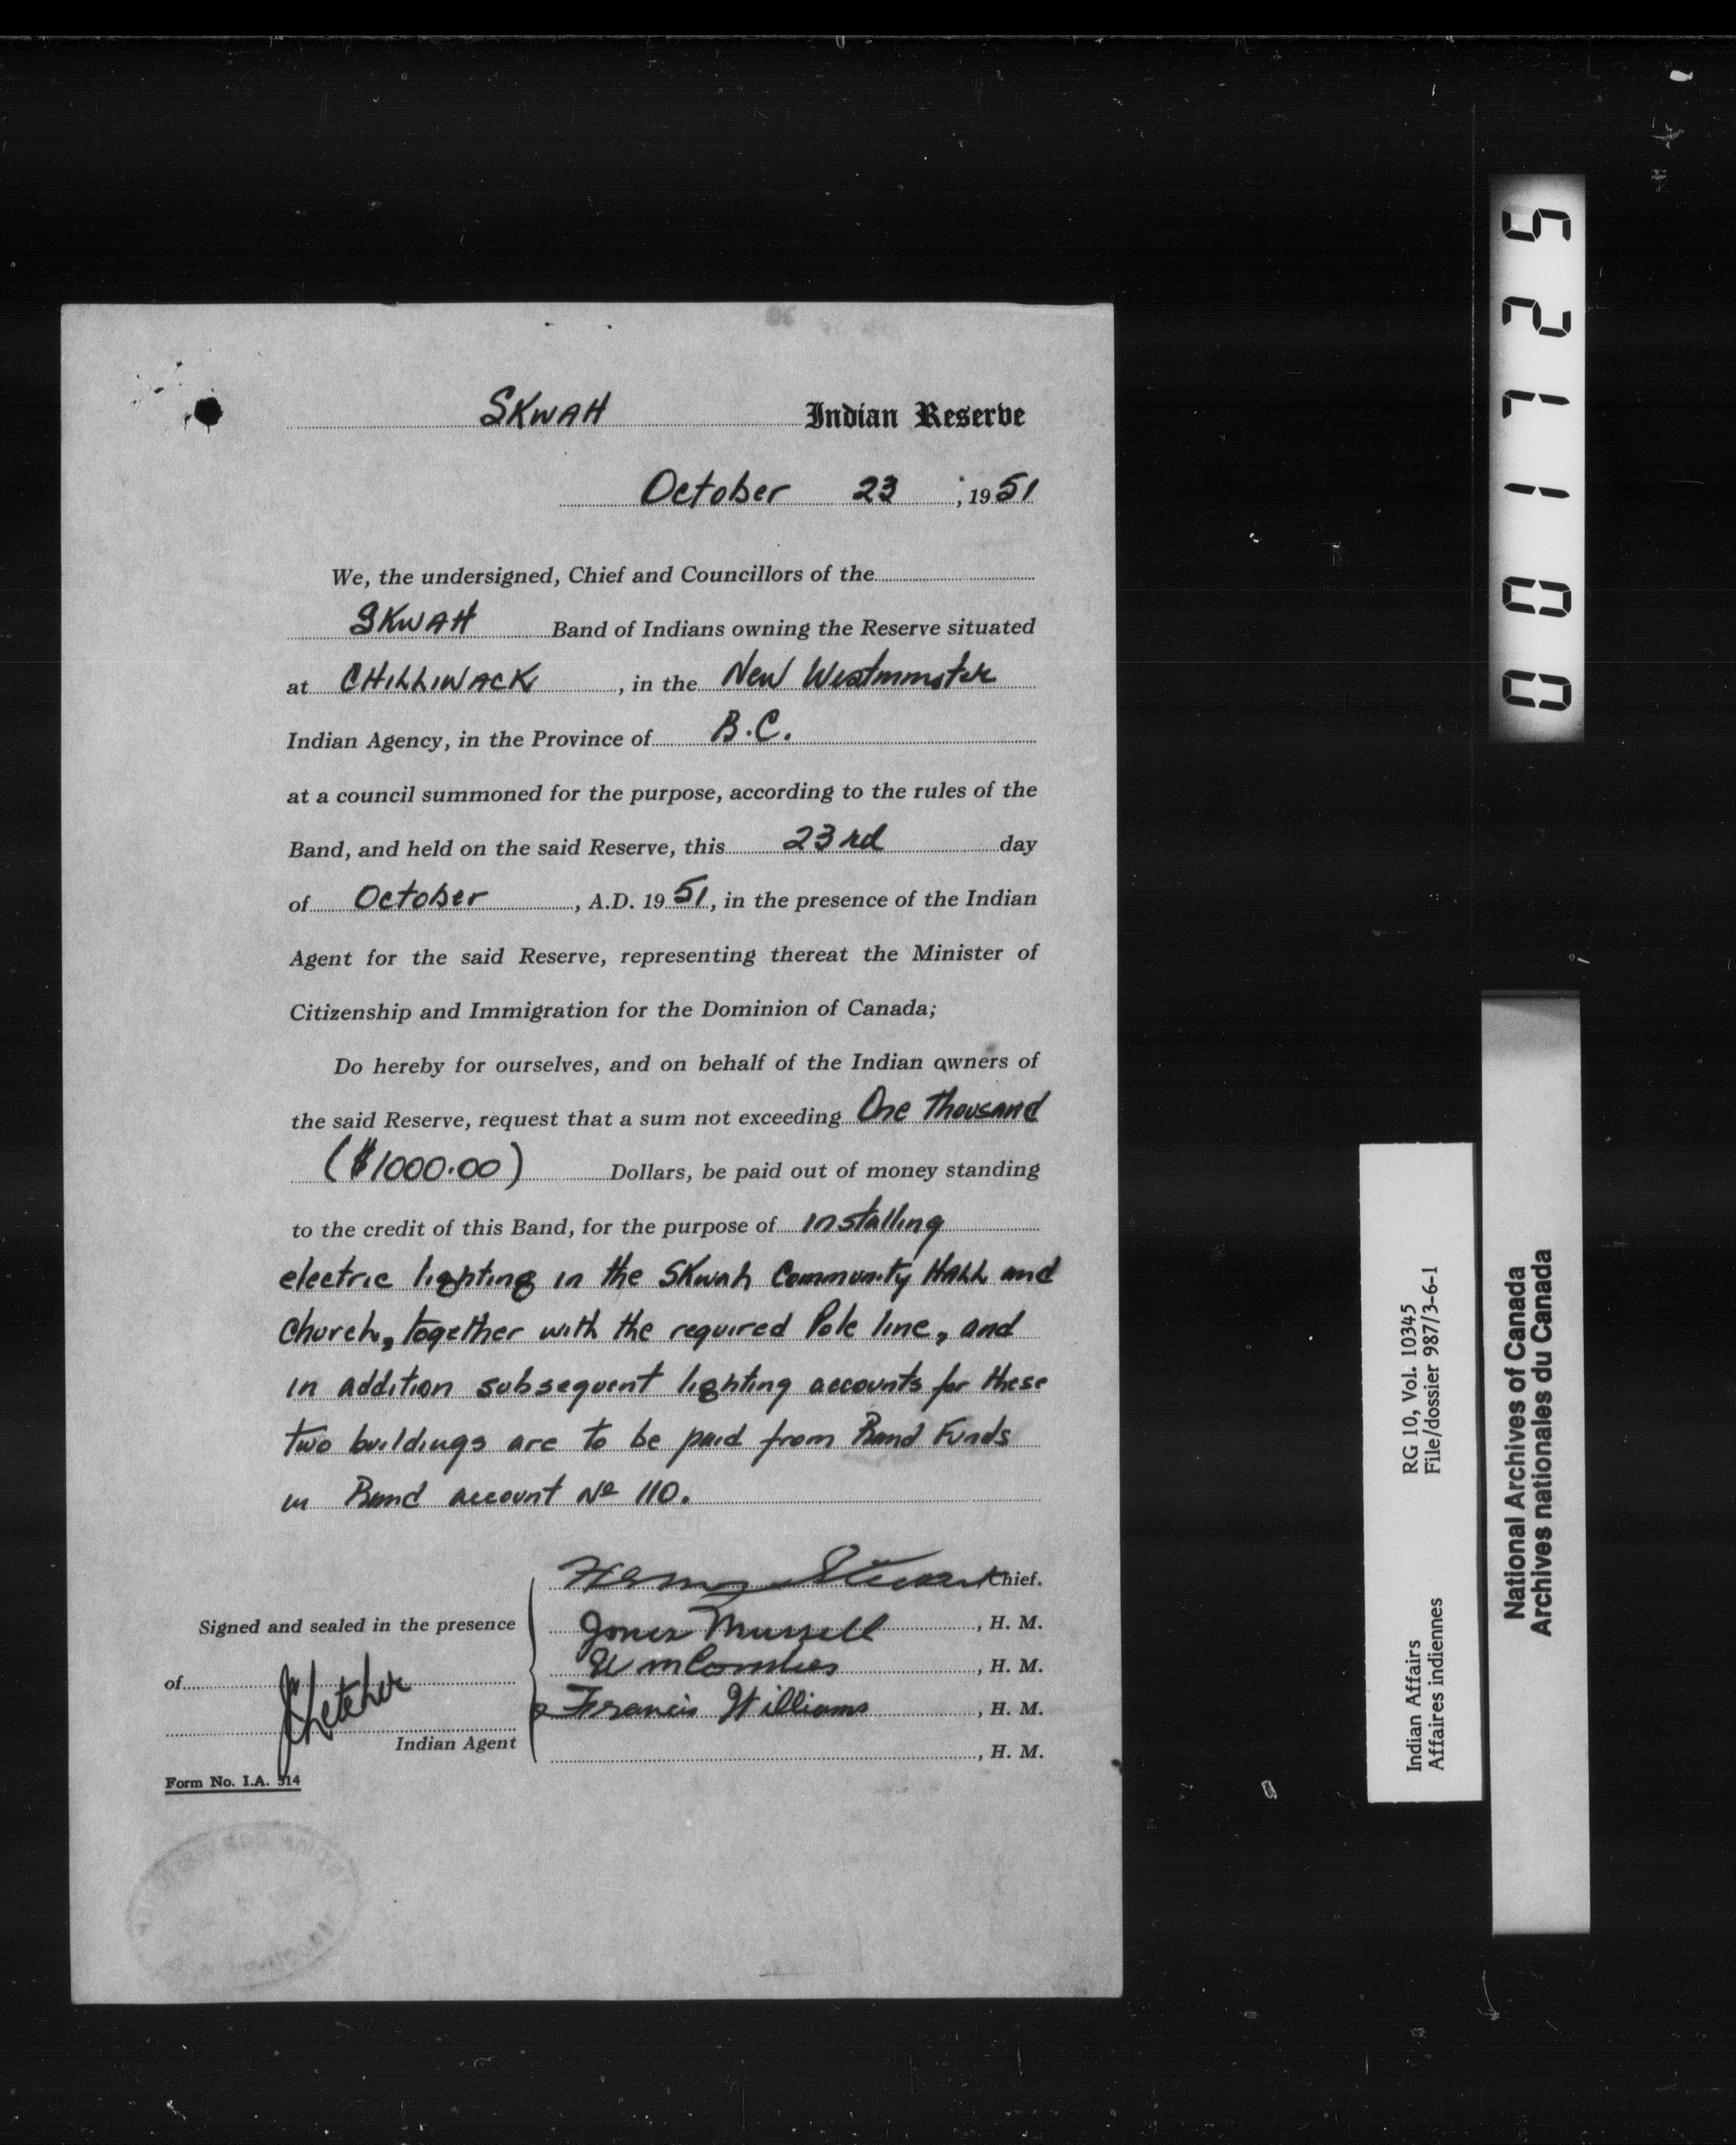 SKWAH Indian Reserve
October 23, 1951
We, the undersigned, Chief and Councillors of the
SKWAH Band of Indians owning the Reserve situated
at CHILLIWACK, in the New Westminster
Indian Agency, in the Province of B.C.
at a council summoned for the purpose, according to the rules of the
Band, and held on the said Reserve, this 23rd day
of October, A.D. 1951, in the presence of the Indian
Agent for the said Reserve, representing thereat the Minister of
Citizenship and Immigration for the Dominion of Canada;
Do hereby for ourselves, and on behalf of the Indian owners of
the said Reserve, request that a sum not exceeding One Thousand
($1000.00) Dollars, be paid out of money standing
to the credit of this Band, for the purpose of installing
electric lighting in the Skwah Community Hall and
Church, together with the required Pole line, and
in addition subsequent lighting accounts for these
two buildings are to be paid from Band Funds
in Band account No 110.
Henry Stewart Chief.
Signed and sealed in the presence
of
Indian Agent
James Mussell, H. M.
Wm, H. M.
Francis Williams, H. M.
, H. M.
Form No. I.A. 314
001725
Indian Affairs RG 10, Vol. 10345
Affaires indiennes File/dossier 987/3-6-1
National Archives of Canada
Archives nationales du Canada